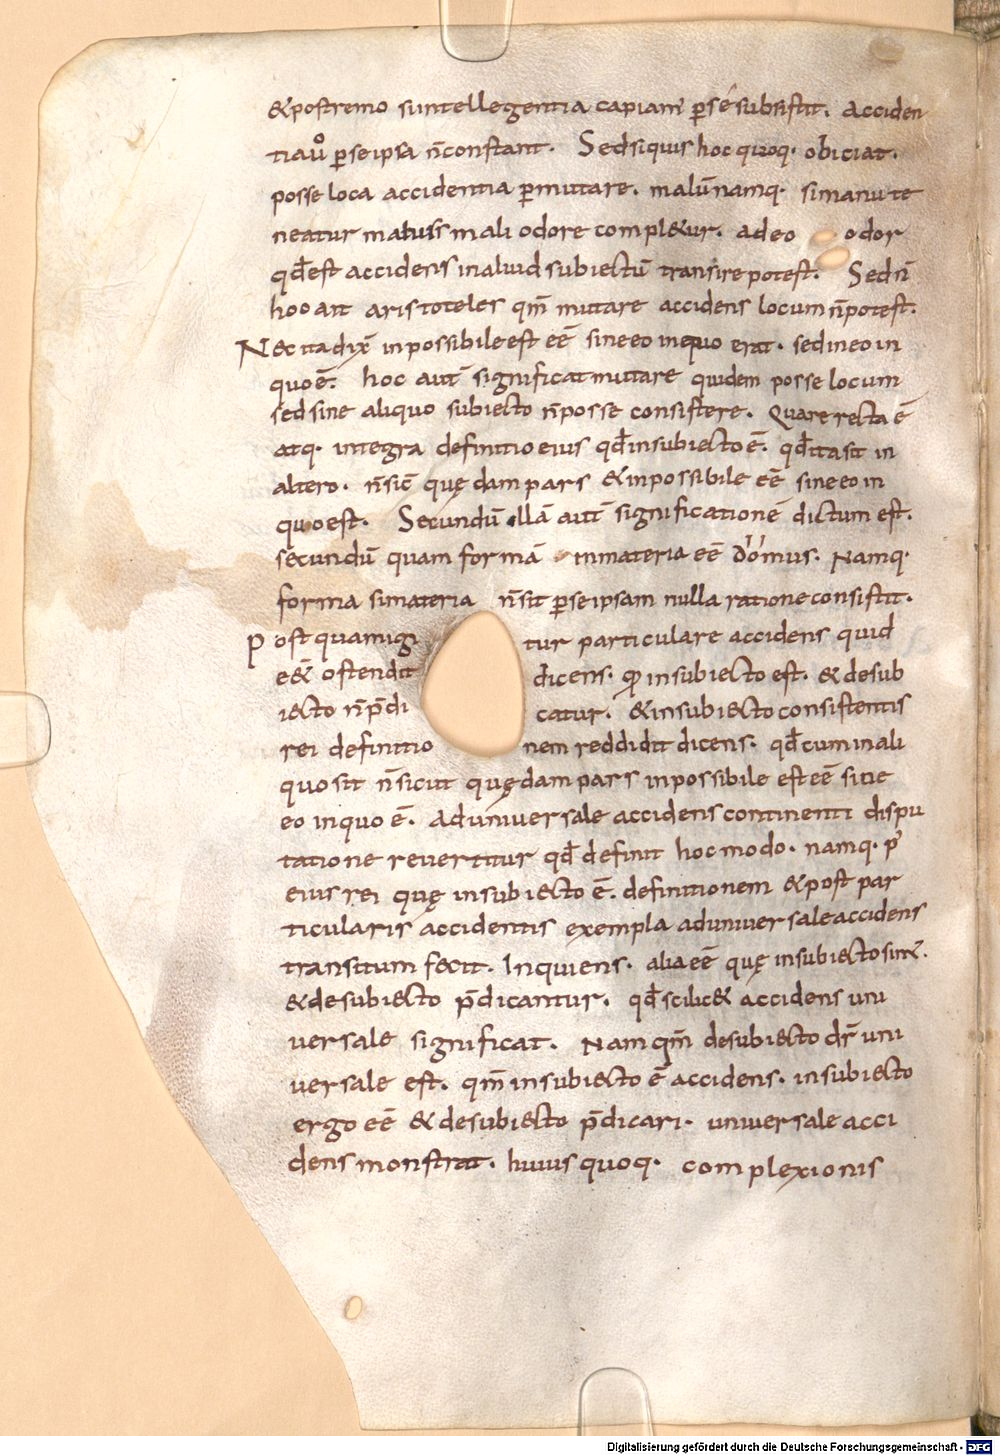 &postremo siintellegentia capiam̄ p̱sé subsistit. acciden
tiaů p̱seipsa n̄constant. Sedsiquis hoc quoq· obiciat.
posse loca accidentia p̱mutare. malūnamq· simanu te
neatur manus mali odore compl&ur. adeo odor
qđest accidens inaliud subiectū transire potest. Sed n̄
hoc ait aristoteles qm̄ mutare accidens locum n̄potest.
Nec ita dix̄ inpossibile est eē sine eo inquo erat. sed in eo in
quo ē. hoc aut̄ significat mutare quidem posse locum
sed sine aliquo subiecto n̄posse consistere. Quare recta ē
atq· integra definitio eius qđinsubiecto ē. qđita sit in
altero. n̄sic̄ quędam pars & inpossibile eē sine eo in
quo est. Secundū illā aut̄ significationē dictum est.
secundū quam formā inmateria eē diximus. Namq·
forma si materia n̄sit p̱seipsam nulla ratione consistit.
Post quam igitur particulare accidens quid
e&̄ ostendit dicens. qđ insubiecto est. & desub
iecto n̄p̄dicatur. & insubiecto consistentis
rei definitionem reddidit dicens. qđ cum in ali
quo sit n̄sicut quędam pars inpossibile est eē sine
eo inquo ē. aduniuersale accidens continenti dispu
tatione reuertitur qđ definit hoc modo. namq· p̓
eius rei quę insubiecto ē. definitionem & post par
ticularis accidentis exempla aduniuersale accidens
transitum fecit. Inquiens. alia eē quę insubiecto sint.
& desubiecto p̄dicantur. qđ scilic& accidens uni
uersale significat. Nam qm̄ desubiecto dr̄ uni
uersale est. qm̄ insubiecto ē accidens. insubiecto
ergo eē & desubiecto p̄dicari. uniuersale acci
dens monstrat. huius quoq· complexionis
Digitalisierung gefördert durch die Deutsche Forschungsgemeinschaft - DFG